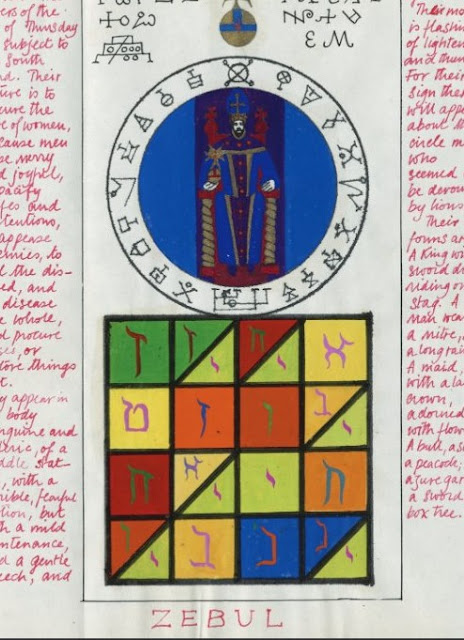 ers of the
of Thursday
subject to
South
nd. Their
ture is to
cure the
e of women,
cause men
be merry
d joyful,
pacify
ifes and
tentions,
appease
emies, to
l the dis-
ed, and
disease
e whole,
d procure
ses, or
store things
t.
y appear in
body
nguine and
leric, of a
ddle stat
, with a
rible, fearful
tion, but
th a mild
ntenance,
d a gentle
eech, and
א יה יד ד
יב ו ז ט
ח י יא ה
יג ג ב יו
ZEBUL
Their mo
is flashin
of lighten
and thun
For their
sign ther
will appea
about th
circle m
who
seemed
be devou
by lions
Their
forms ar
A King wi
sword dr
riding on
stag. A
man wear
a mitre,
a long rai
A maid,
with a la
crown,
adorned
with flow
A bull, a s
a peacock;
azure gar
a sword
box tree.